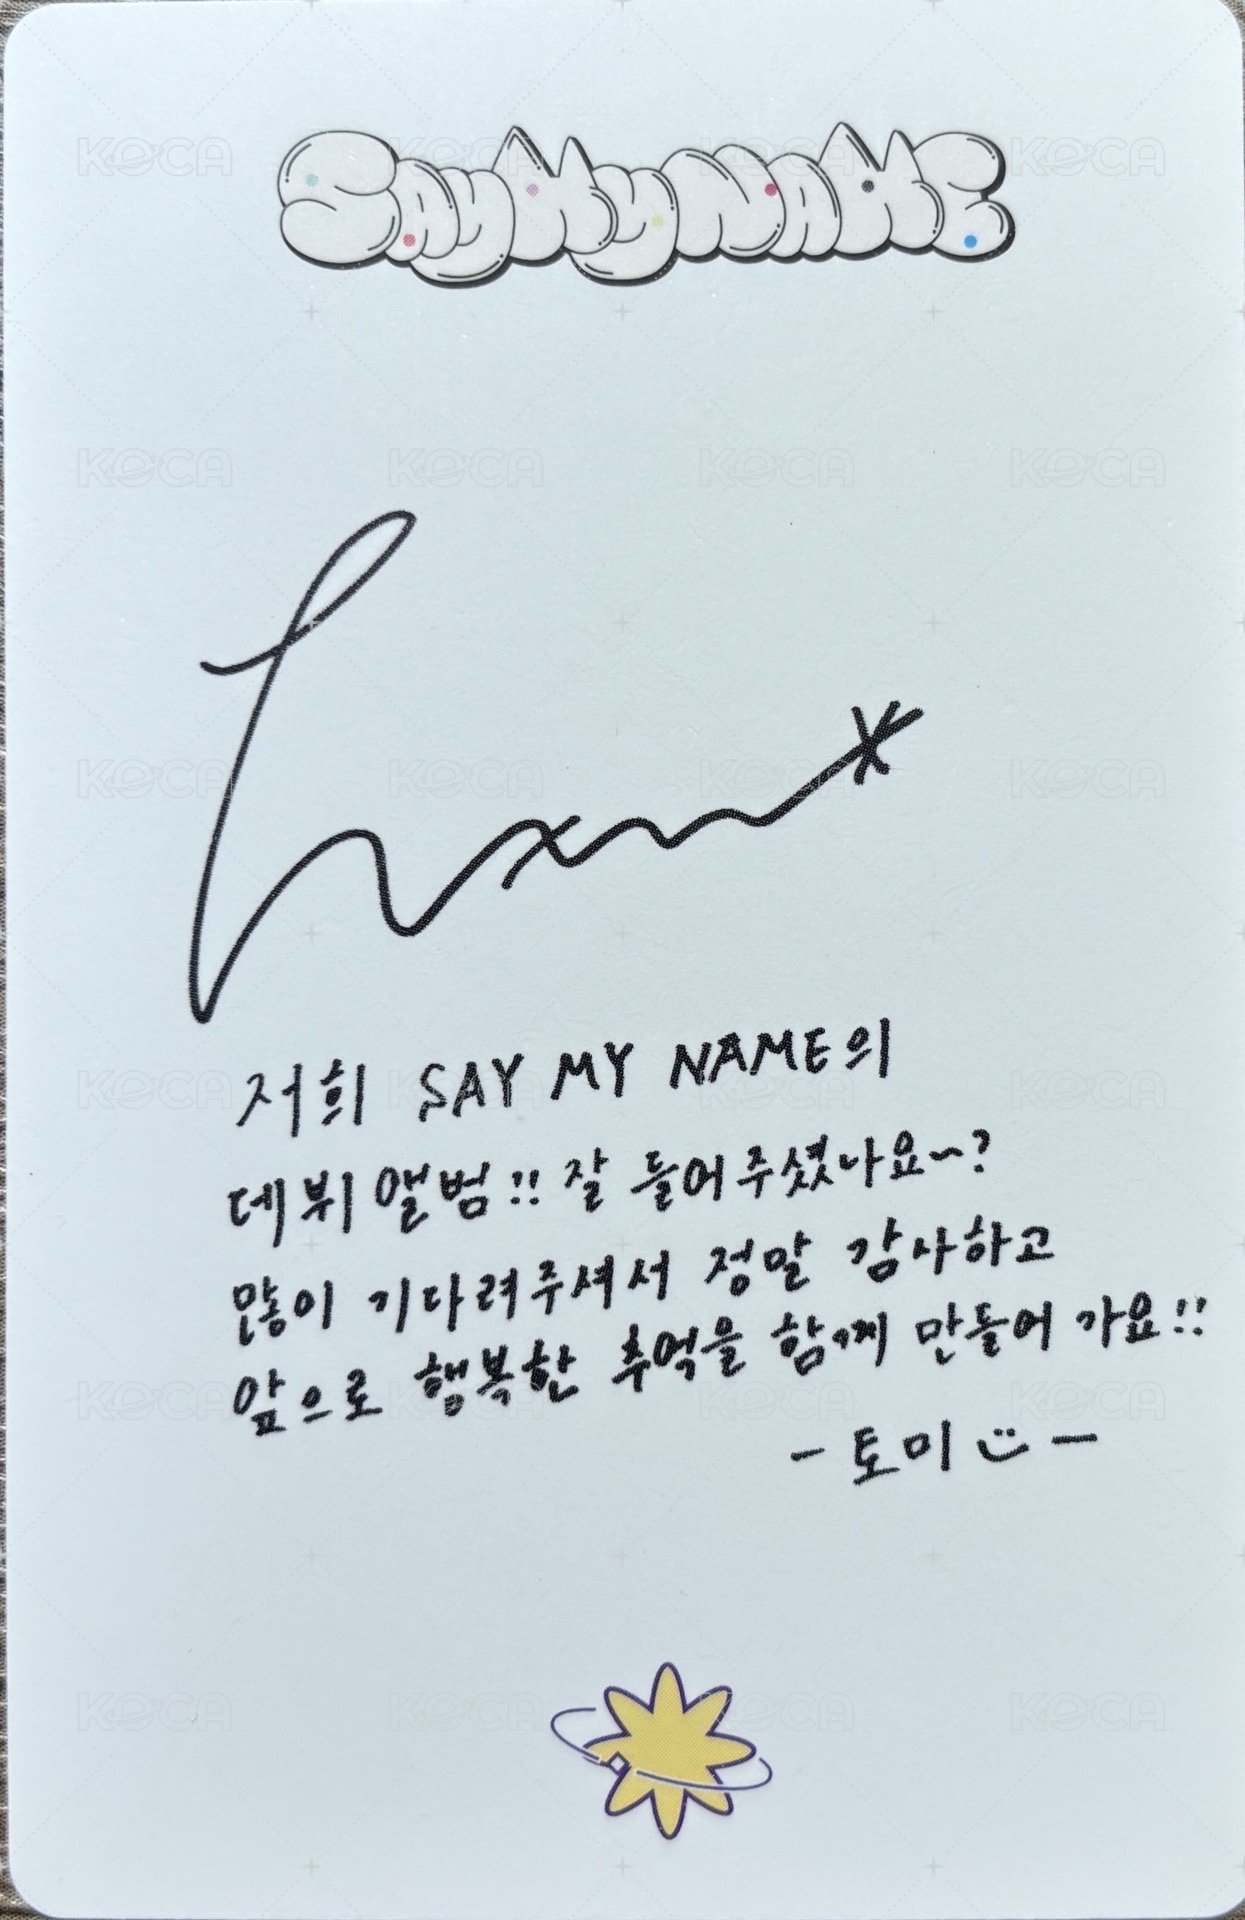 SAY MY NAME
저희 SAY MY NAME의
데뷔 앨범!! 잘 들어주셨나요~?
많이 기다려주셔서 정말 감사하고
앞으로 행복한 추억을 함께 만들어 가요!!
- 토미 :) -
KOCA